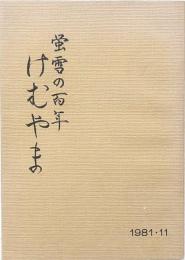 蛍雪の百年
けむやま
1981・11